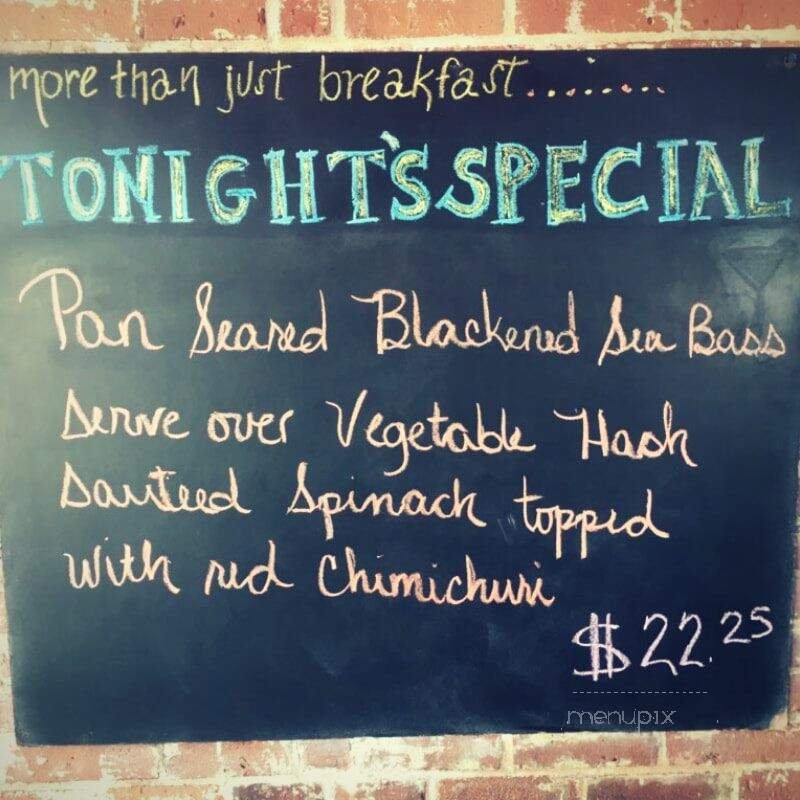 more than just breakfast.........
TONIGHT'S SPECIAL
Pan Seared Blackened Sea Bass
Serve over Vegetable Hash
Sauteed Spinach topped
with red Chimichuri
$22.25
menupix